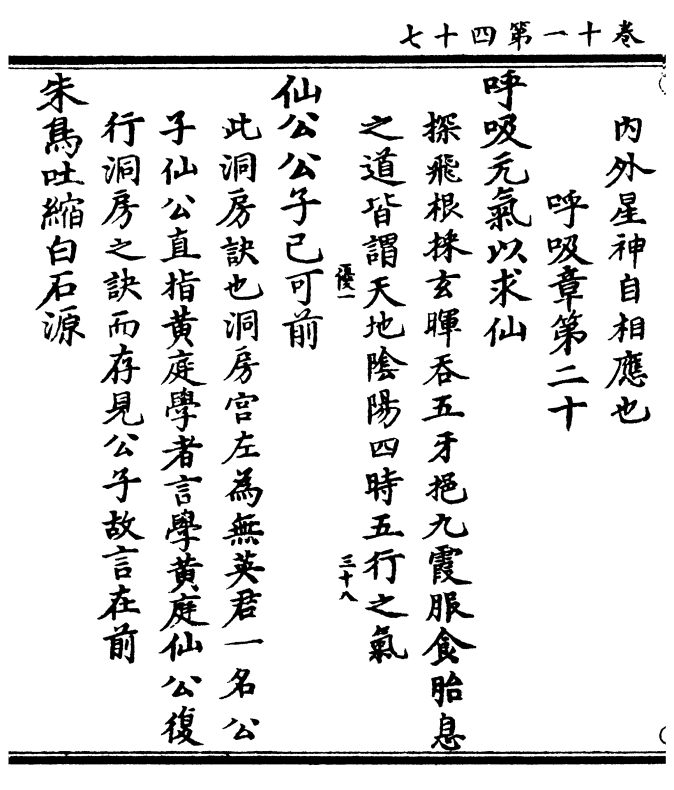 卷十一第四十七
內外星神自相應也
呼吸章第二十
呼吸元氣以求仙
探飛根採玄暉吞五牙挹九霞服食胎息
之道皆謂天地陰陽四時五行之氣
優一
三十八
仙公公子已可前
此洞房訣也洞房宫左為無英君一名公
子仙公直指黃庭學者言學黃庭仙公復
行洞房之訣而存見公子故言在前
朱鳥吐縮白石源